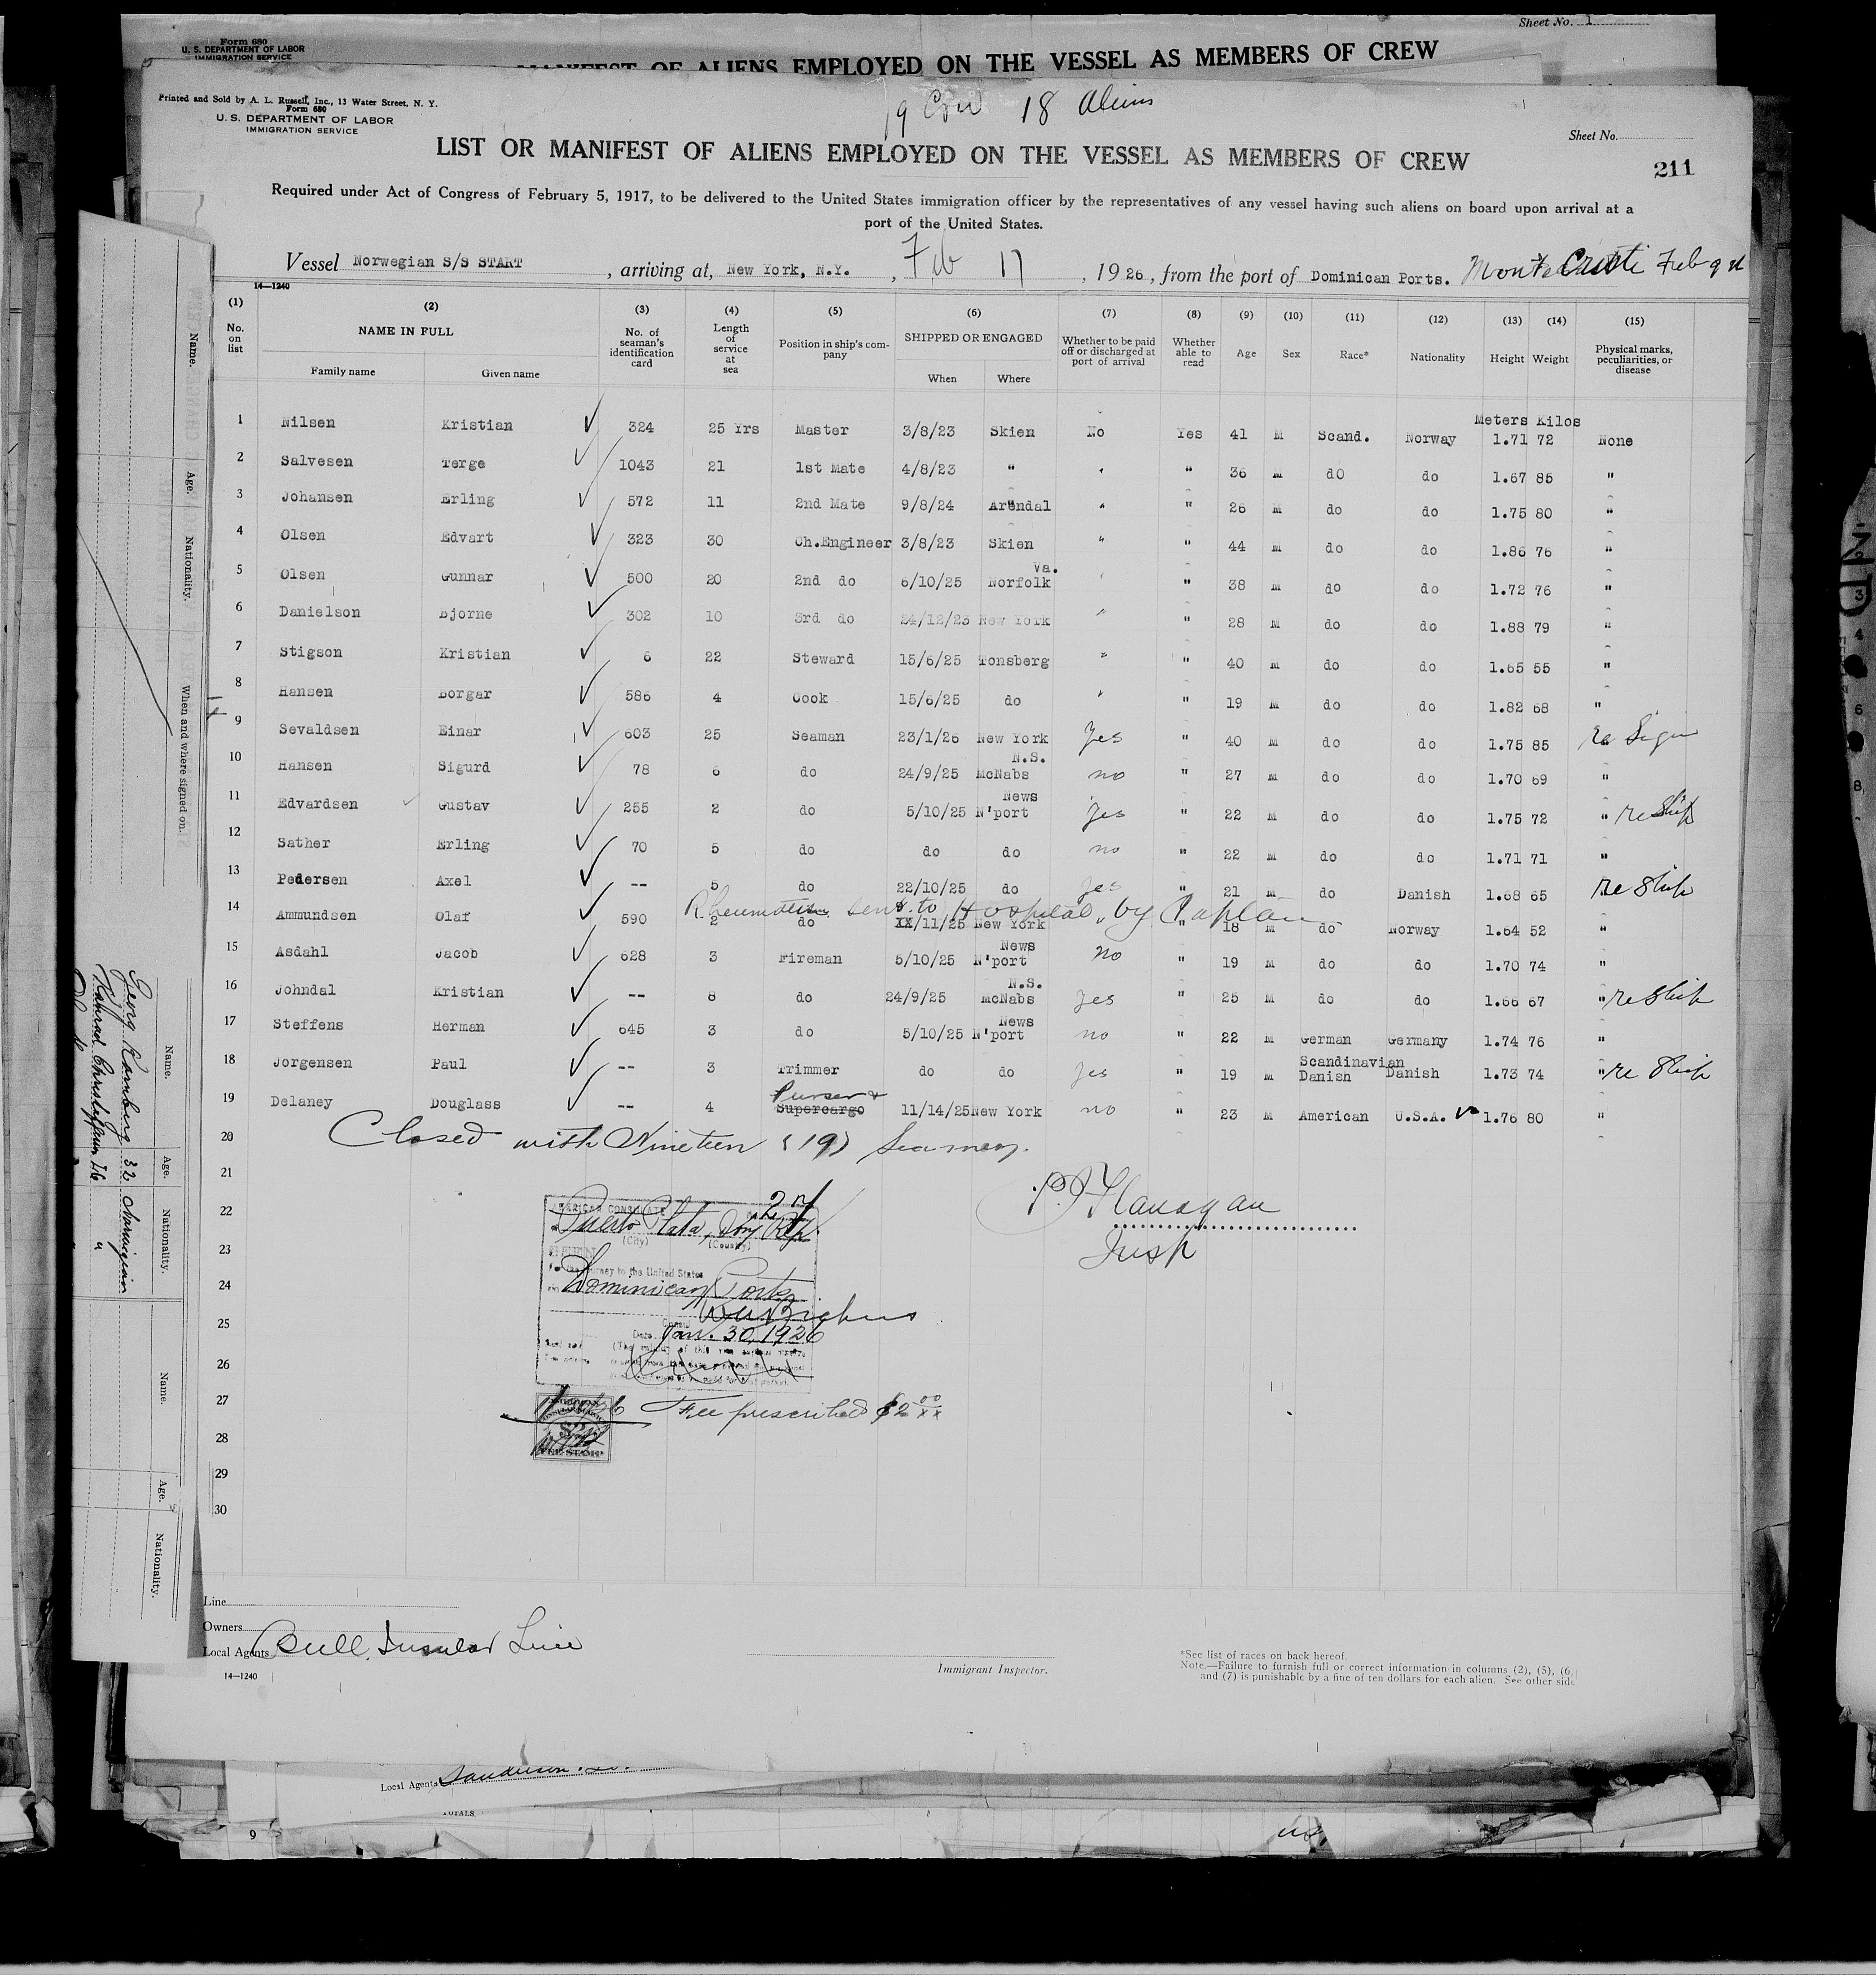 Sheet No. 1
Form 680
U. S. DEPARTMENT OF LABOR
IMMIGRATION SERVICE
MANIFEST OF ALIENS EMPLOYED ON THE VESSEL AS MEMBERS OF CREW
Printed and Sold by A. L. Russell, Inc., 13 Water Street, N. Y.
Form 680
U. S. DEPARTMENT OF LABOR
IMMIGRATION SERVICE
19 Crew 18 Aliens
Sheet No.
LIST OR MANIFEST OF ALIENS EMPLOYED ON THE VESSEL AS MEMBERS OF CREW
211
Required under Act of Congress of February 5, 1917, to be delivered to the United States immigration officer by the representatives of any vessel having such aliens on board upon arrival at a
port of the United States.
Vessel Norwegian S/S START, arriving at, New York, N.Y., Feb 17, 1926, from the port of Dominican Ports. Monte Cristi Feb 9
14—1240
(1) (2) (3) (4) (5) (6) (7) (8) (9) (10) (11) (12) (13) (14) (15)
No. on list
NAME IN FULL
Family name Given name
No. of seaman's identification card
Length of service at sea
Position in ship's company
SHIPPED OR ENGAGED
When Where
Whether to be paid off or discharged at port of arrival
Whether able to read
Age
Sex
Race*
Nationality
Height
Weight
Physical marks, peculiarities, or disease
Meters Kilos
1 Nilsen Kristian 324 25 Yrs Master 3/8/23 Skien No Yes 41 M Scand. Norway 1.71 72 None
2 Salvesen Terge 1043 21 1st Mate 4/8/23 " " " 36 M do do 1.67 85 "
3 Johansen Erling 572 11 2nd Mate 9/8/24 Arendal " " 26 M do do 1.75 80 "
4 Olsen Edvart 323 30 Ch.Engineer 3/8/23 Skien " " 44 M do do 1.86 76 "
5 Olsen Gunnar 500 20 2nd do 6/10/25 Norfolk Va. " 38 M do do 1.72 76 "
6 Danielson Bjorne 302 10 3rd do 24/12/23 New York " " 28 M do do 1.88 79 "
7 Stigson Kristian 6 22 Steward 15/6/25 Tonsberg " " 40 M do do 1.65 55 "
8 Hansen Borgar 586 4 Cook 15/6/25 do " " 19 M do do 1.82 68 "
9 Sevaldsen Einar 603 25 Seaman 23/1/26 New York Yes " 40 M do do 1.75 85 re Sign
10 Hansen Sigurd 78 6 do 24/9/25 McNabs N.S. no " 27 M do do 1.70 69 "
11 Edvardsen Gustav 255 2 do 5/10/25 News N'port Yes " 22 M do do 1.75 72 " re Ship
12 Sather Erling 70 5 do do do no " 22 M do do 1.71 71 "
13 Pedersen Axel -- 5 do 22/10/25 do Yes " 21 M do Danish 1.68 65 re Ship
14 Ammundsen Olaf 590 2 do XX/11/25 New York " 18 M do Norway 1.64 52 "
sent to Hospital by Captain
15 Asdahl Jacob 628 3 Fireman 5/10/25 News N'port no " 19 M do do 1.70 74 "
16 Johndal Kristian -- 8 do 24/9/25 McNabs N.S. Yes " 25 M do do 1.66 67 " re Ship
17 Steffens Herman 645 3 do 5/10/25 News N'port no " 22 M German Germany 1.74 76 "
18 Jorgensen Paul -- 3 Trimmer do do Yes " 19 M Scandinavian Danish Danish 1.73 74 " re Ship
19 Delaney Douglass -- 4 Purser & Supercargo 11/14/25 New York no " 23 M American U.S.A. 1.76 80 "
20 Closed with Nineteen (19) Seamen.
21
22
23
24
25
26
27
28
29
30
P J Flanagan
Insp
AMERICAN CONSULATE
Puerto Plata, Dom. Rep.
(City) (Country)
For the journey to the United States
Dominican Ports
Consul
Date Jan. 30, 1926
Fee prescribed $2 00/xx
FEE STAMP
Line
Owners
Local Agents Bull Insular Line
14—1240
Immigrant Inspector.
*See list of races on back hereof.
Note.—Failure to furnish full or correct information in columns (2), (5), (6)
and (7) is punishable by a fine of ten dollars for each alien. See other side
Name. Age. Nationality. When and where signed on.
Name. Age. Nationality.
Georg Ramberg 32 Norwegian
Name. Age. Nationality.
Local Agents
TOTALS
9